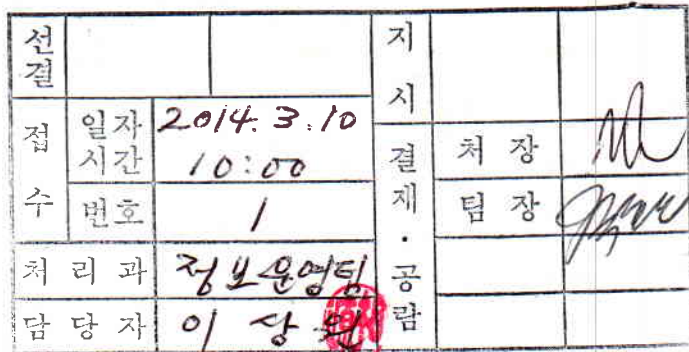 선결
지시
접수
일자
시간
2014. 3. 10
10:00
번호
1
결재·공람
처장
팀장
처리과
정보운영팀
담당자
이상